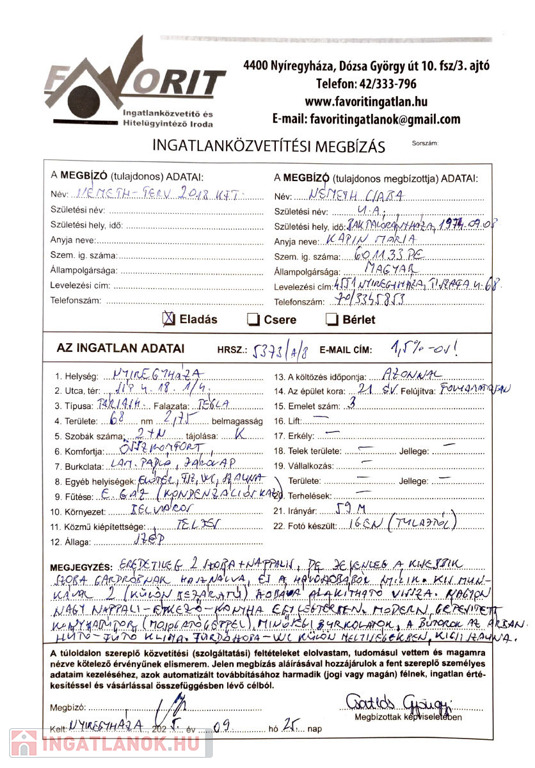 FAVORIT
Ingatlanközvetítő és
Hitelügyintéző Iroda
4400 Nyíregyháza, Dózsa György út 10. fsz/3. ajtó
Telefon: 42/333-796
www.favoritingatlan.hu
E-mail: favoritingatlanok@gmail.com
INGATLANKÖZVETÍTÉSI MEGBÍZÁS
Sorszám
A MEGBÍZÓ (tulajdonos) ADATAI:
Név: NÉMETH-TERV 2018 KFT.
Születési név:
Születési hely, idő:
Anyja neve:
Szem. ig. száma:
Állampolgársága:
Levelezési cím:
Telefonszám:
A MEGBÍZÓ (tulajdonos megbízottja) ADATAI:
Név: NÉMETH CSABA
Születési név: U.A.
Születési hely, idő: 1974.09.08
Anyja neve: KAPIN MÁRIA
Szem. ig. száma: 601133PE
Állampolgársága: MAGYAR
Levelezési cím: 4551 NYIREGYHÁZA, u. 68.
Telefonszám: 70/3345853
X Eladás
Csere
Bérlet
AZ INGATLAN ADATAI
HRSZ.: 5373/A/8
E-MAIL CÍM: 1,5%
1. Helység: NYIREGYHÁZA
2. Utca, tér: 18. 1/4.
3. Típusa: Falazata: TÉGLA
4. Területe: 68 nm 2,75 belmagasság
5. Szobák száma: 2+N tájolása: K
6. Komfortja: ÖSSZKOMFORT
7. Burkolata: LAM. PADLÓ, JÁRÓLAP
8. Egyéb helyiségek: SZAUNA
9. Fűtése: E. GÁZ (KONDENZÁCIÓS KAZÁN)
10. Környezet: BELVÁROS
11. Közmű kiépítettsége: TELJES
12. Állaga: SZÉP
13. A költözés időpontja: AZONNAL
14. Az épület kora: 21 ÉV Felújítva: FOLYAMATOSAN
15. Emelet szám: 3
16. Lift: —
17. Erkély: —
18. Telek területe: — Jellege: —
19. Vállalkozás: —
Területe: — Jellege: —
20. Terhelések: —
21. Irányár: 59 M
22. Fotó készült: IGEN (TULAJTÓL)
MEGJEGYZÉS: EREDETILEG 2 SZOBA+NAPPALIS, DE JELENLEG A KISEBBIK
SZOBA GARDRÓBNAK HASZNÁLVA, ÉS A HÁLÓSZOBÁBÓL NYÍLIK. KIS MUN-
KÁVAL 2 (KÜLÖN BEJÁRATÚ) SZOBÁVÁ ALAKÍTHATÓ VISSZA. NAGYON
NAGY NAPPALI-ÉTKEZŐ-KONYHA EGY LÉGTÉRBEN, MODERN, GÉPESÍTETT
KONYHABÚTOR (MOSOGATÓGÉPPEL), MINŐSÉGI BURKOLATOK, A BÚTOROK AZ ÁRBAN.
HŰTŐ-FŰTŐ KLÍMA. FÜRDŐSZOBA-WC KÜLÖN HELYISÉGEKBEN, KICSI SZAUNA.
A túloldalon szereplő közvetítési (szolgáltatási) feltételeket elolvastam, tudomásul vettem és magamra
nézve kötelező érvényűnek elismerem. Jelen megbízás aláírásával hozzájárulok a fent szereplő személyes
adataim kezeléséhez, azok automatizált továbbításához harmadik (jogi vagy magán) félnek, ingatlan érté-
kesítéssel és vásárlással összefüggésben lévő célból.
Megbízó:
Csatlós Györgyi
Megbízottak képviseletében
Kelt: NYIREGYHÁZA, 2025. év 09 hó 25. nap
INGATLANOK.HU